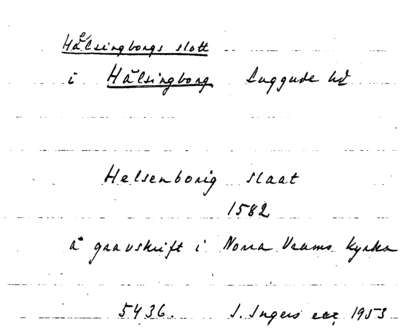 Hälsingborgs slott
i Hälsingborg Luggude hd
Helsenborig slaat
1582
å gravskrift i Norra Vrams kyrka
5436. I. Ingers exc. 1953